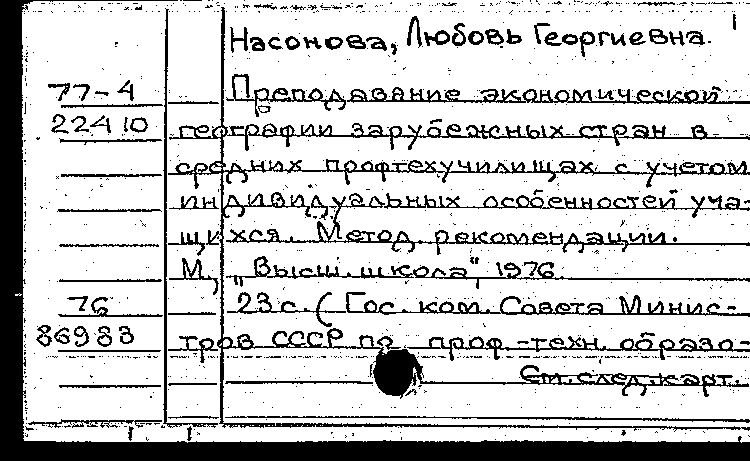 Насонова, Любовь Георгиевна.
77-4 Преподавание экономической
22410 географии зарубежных стран в
средних профтехучилищах с учетом
индивидуальных особенностей уча-
щихся. Метод. рекомендации.
М., "Высш. школа", 1976.
76 23 с. (Гос. ком. Совета Минис-
86983 тров СССР по проф.-техн. образо-
См. след. карт.